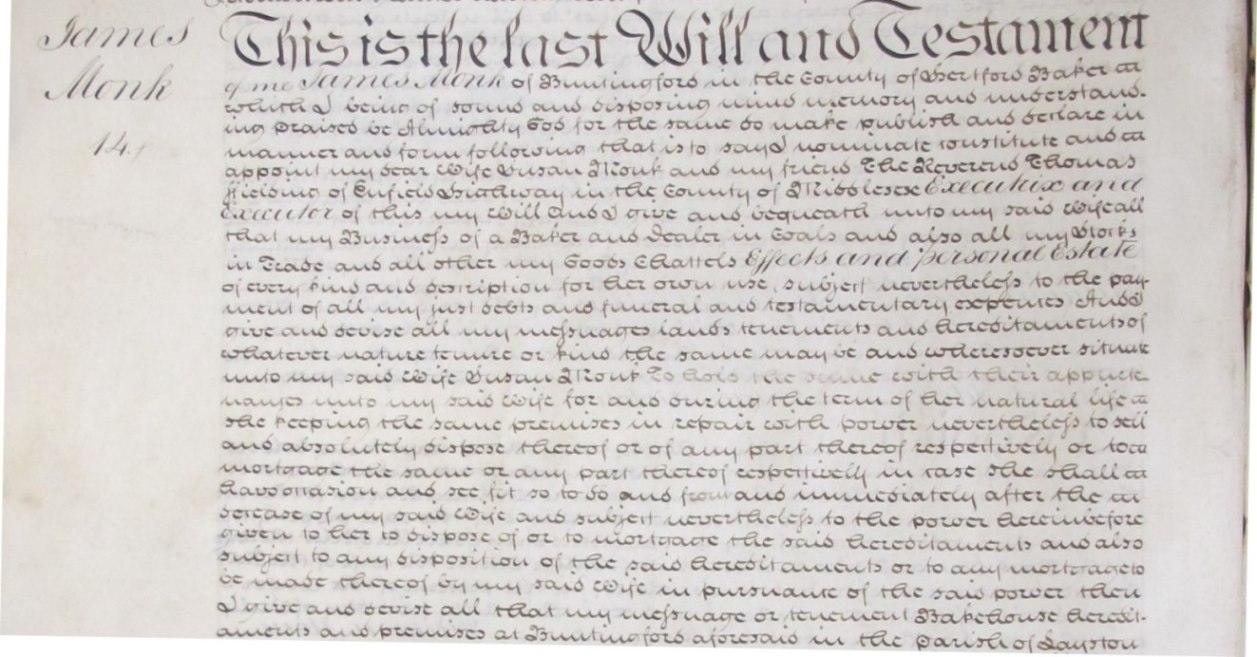 James
Monk
14.
This is the last Will and Testament
of me James Monk of Buntingford in the County of Hertford Baker
which I being of sound and disposing mind memory and understand-
ing praised be Almighty God for the same do make publish and declare in
manner and form following that is to say I nominate constitute and
appoint my dear Wife Susan Monk and my friend The Reverend Thomas
Fielding of Enfield Highway in the County of Middlesex Executrix and
Executor of this my Will And I give and bequeath unto my said Wife all
that my Business of a Baker and Dealer in Coals and also all my Stocks
in Trade and all other my Goods Chattels Effects and personal Estate
of every kind and description for her own use, subject nevertheless to the pay-
ment of all my just debts and funeral and testamentary expences And I
give and devise all my messuages lands tenements and hereditaments of
whatever nature tenure or kind the same may be and wheresoever situate
unto my said Wife Susan Monk To hold the same with their appurte-
nances unto my said Wife for and during the term of her natural life
she keeping the same premises in repair with power nevertheless to sell
and absolutely dispose thereof or of any part thereof respectively or to
mortgage the same or any part thereof respectively in case she shall
have occasion and see fit so to do and from and immediately after the
decease of my said Wife and subject nevertheless to the power hereinbefore
given to her to dispose of or to mortgage the said hereditaments and also
subject to any disposition of the said hereditaments or to any mortgage to
be made thereof by my said Wife in pursuance of the said power then
I give and devise all that my messuage or tenement Bakehouse heredit-
aments and premises at Buntingford aforesaid in the parish of Layston